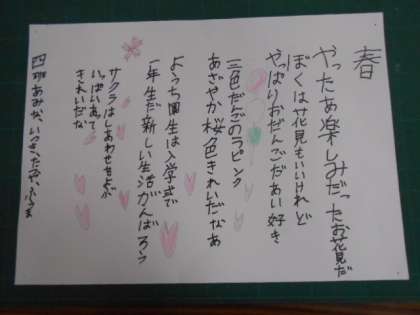 春
やったあ楽しみだったお花見だ
ぼくは花見もいいけれど
やっぱりおだんごだあい好き
三色だんごのラピンク
あざやか桜色きれいだなあ
ようち園生は入学式で
一年生だ新しい生活がんばろう
サクラはしあわせをよぶ
いっぱいあって
きれいだな
四班あみな、いつき、たや、ふうま